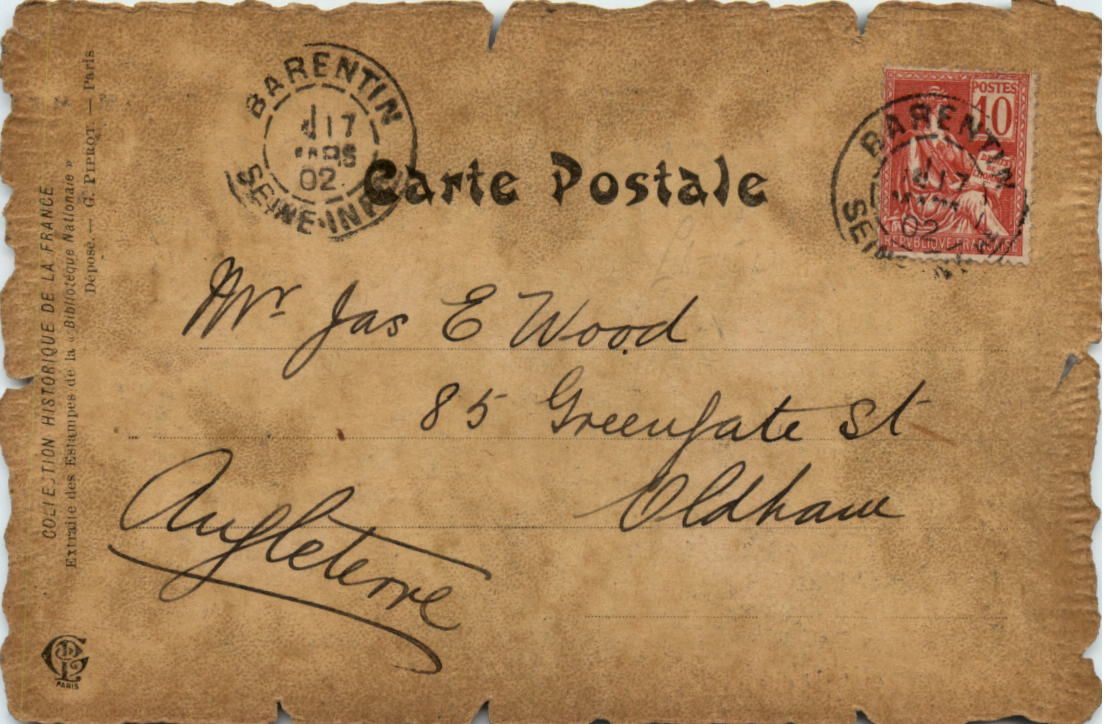 COLLECTION HISTORIQUE DE LA FRANCE
Extraite des Estampes de la « Bibliotèque Nationale »
Déposé. — G. PIPROT — Paris
BARENTIN
17
MARS
02
SEINE-INF
Carte Postale
POSTES
10
REPVBLIQVE FRANÇAISE
BARENTIN
17
02
Mr Jas E Wood
85 Greengate St
Oldham
Angleterre
PARIS